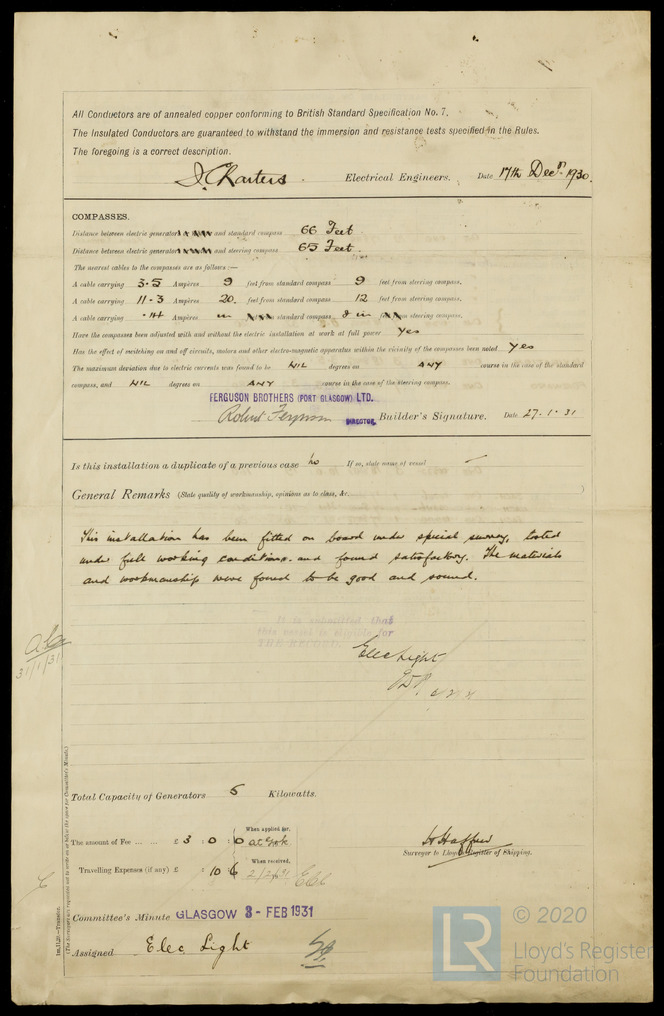 All Conductors are of annealed copper conforming to British Standard Specification No. 7.
The Insulated Conductors are guaranteed to withstand the immersion and resistance tests specified in the Rules.
The foregoing is a correct description.
J. Charters. Electrical Engineers. Date 17th Decr. 1930.
COMPASSES.
Distance between electric generator and standard compass 66 Feet.
Distance between electric generator and steering compass 65 Feet.
The nearest cables to the compasses are as follows :—
A cable carrying 3.5 Ampères 9 feet from standard compass 9 feet from steering compass.
A cable carrying 11.3 Ampères 20. feet from standard compass 12 feet from steering compass.
A cable carrying .14 Ampères in standard compass & in steering compass.
Have the compasses been adjusted with and without the electric installation at work at full power Yes
Has the effect of switching on and off circuits, motors and other electro-magnetic apparatus within the vicinity of the compasses been noted Yes
The maximum deviation due to electric currents was found to be NIL degrees on ANY course in the case of the standard
compass, and NIL degrees on ANY course in the case of the steering compass.
FERGUSON BROTHERS (PORT GLASGOW) LTD.
Robert Ferguson DIRECTOR. Builder's Signature. Date 27.1.31
Is this installation a duplicate of a previous case no If so, state name of vessel —
General Remarks (State quality of workmanship, opinions as to class, &c. )
This installation has been fitted on board under special survey, tested
under full working conditions and found satisfactory. The materials
and workmanship were found to be good and sound.
It is submitted that
this vessel is eligible for
THE RECORD.
Elec Light
31/1/31
Total Capacity of Generators 5 Kilowatts.
The amount of Fee ... ... £ 3 : 0 : 0
When applied for,
Travelling Expenses (if any) £ : 10 : 6
When received,
2/2/31
Surveyor to Lloyd's Register of Shipping.
Committee's Minute GLASGOW 3 - FEB 1931
Assigned Elec Light
1m,11,29.—Transfer.
(The Surveyors are requested not to write on or below the space for Committee's Minute.)
LR
© 2020
Lloyd's Register
Foundation